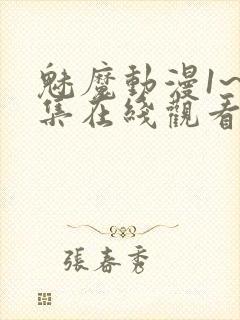 魅魔動漫1~
集在綫觀看
張春秀